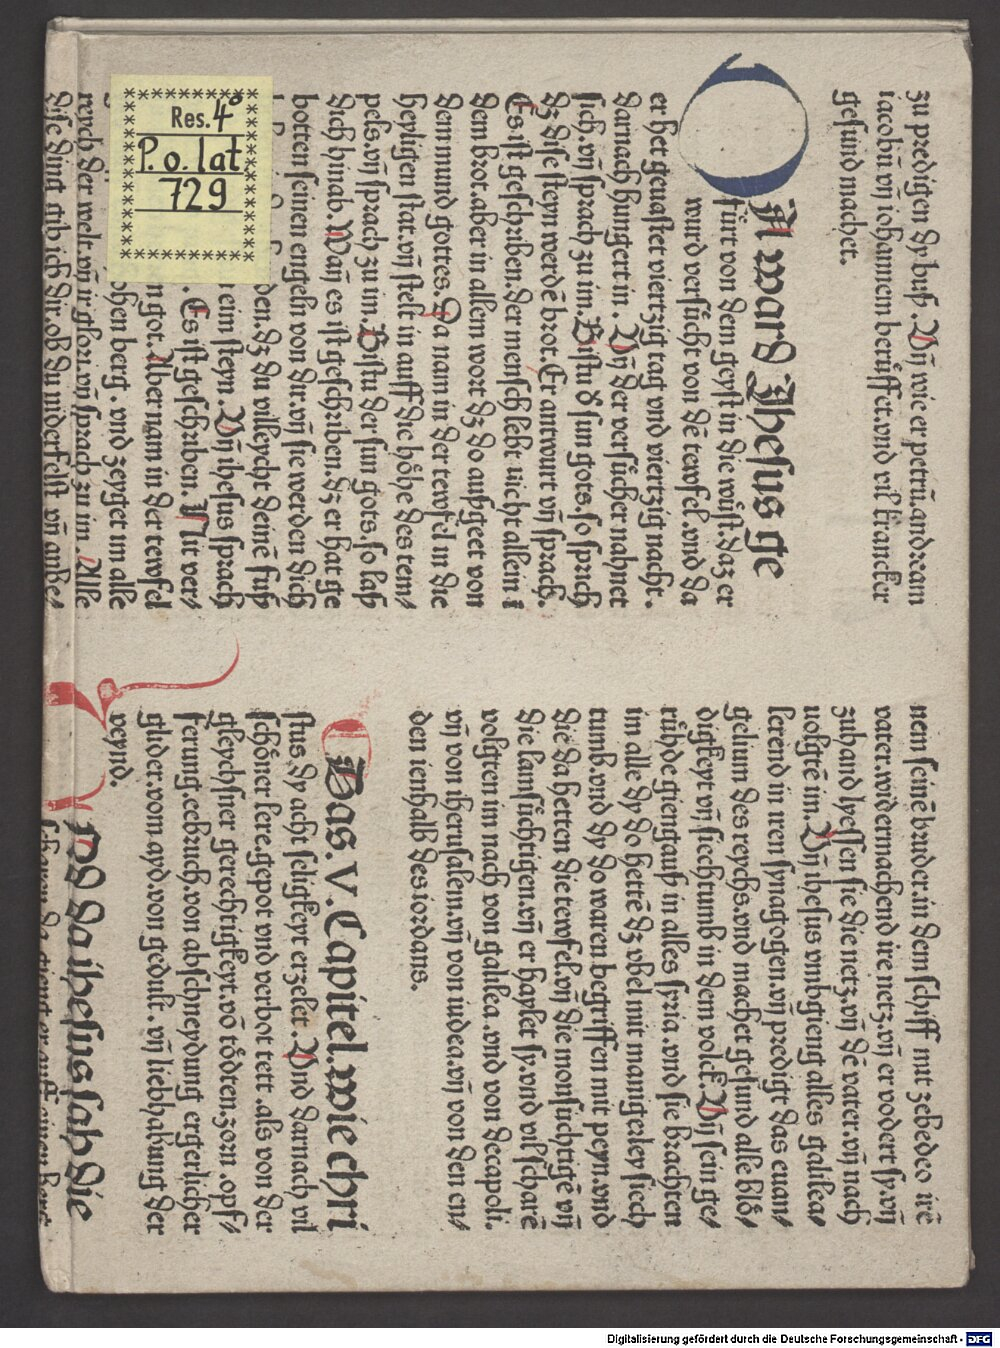 Res. 4°
P. o. lat.
729
zu predigen dy buß. Vñ wie er petrū. andream
iacobū vñ iohannem berůffet. vnd vil krancker
gesund machet.
A ward Jhesus ge
fůrt von dem geyst in die wůst. daz er
wurd versůcht von dē tewfel. vnd da
er het geuastet viertzig tag vnd viertzig nacht.
darnach hungert in. Vñ der versůcher nahnet
sich. vñ sprach zu im. Bistu d sun gots. so sprich
dz dise steyn werdē brot. Er antwurt vñ sprach.
Es ist geschriben. der mensch lebt nicht allein i
dem brot. aber in allem wort dz do außgeet von
dem mund gottes. Da nam in der tewfel in die
heyligen stat. vñ stelt in auff die hőhe des tem/
pels. vñ sprach zu im. Bistu der sun gots. so laß
dich hinab. Wañ es ist geschriben. dz er hat ge
botten seinen engeln von dir. vñ sie werden dich
den. dz du villeycht deinē fuß
ein steyn. Vñ ihesus sprach
. Es ist geschriben. Nit ver/
n got. Aber nam in der tewfel
ohen berg. vnd zeyget im alle
reych der welt. vñ ir glori. vñ sprach zu im. Alle
dise ding gib ich dir. ob du niderfelst vñ anbe/
nem seinē bruder. in dem schiff mit zebedeo irē
vater. widermachend ire netz. vñ er vodert sy. vñ
zuhand lyessen sie die netz. vñ dē vater. vñ nach
uolgtē im. Vñ ihesus vmbgieng alles galilea/
lerend in iren synagogen. vñ predigt das euan/
gelium des reychs. vnd machet gesund alle blő/
digkeyt vñ siechtumb in dem volck. Vñ sein ge/
růhde gieng auß in alles syria. vnd sie brachten
im alle dy do hettē dz vbel mit mangerley siech
tumb. vnd dy do waren begriffen mit peyn. vnd
die da hetten die tewfel. vñ die monsůchtigē vñ
die lamsůchtigen. vñ er haylet sy. vnd vil scharē
volgten im nach von galilea. vnd von decapoli.
vñ von iherusalem. vñ von iudea. vñ von den en/
den ienhalb des iordans.
Das. V. Capitel. wie chri
stus dy acht seligkeyt erzelet. Vnd darnach vil
schőner lere. gepot vnd verbot tett. als von der
gleychsner gerechtigkeyt. vō tődten. zorn. opf/
ferung. eebruch. von abschneydung ergerlicher
glider. vom ayd. von gedult. vñ liebhabung der
veynd.
Nd da ihesus sah die
Digitalisierung gefördert durch die Deutsche Forschungsgemeinschaft - DFG